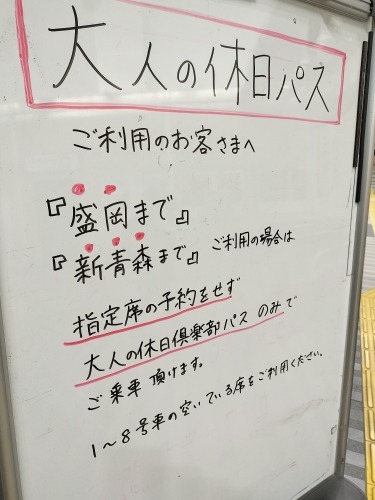 大人の休日パス
ご利用のお客さまへ
『盛岡まで』
『新青森まで』ご利用の場合は
指定席の予約をせず
大人の休日倶楽部パスのみで
ご乗車頂けます。
1～8号車の空いている席をご利用ください。